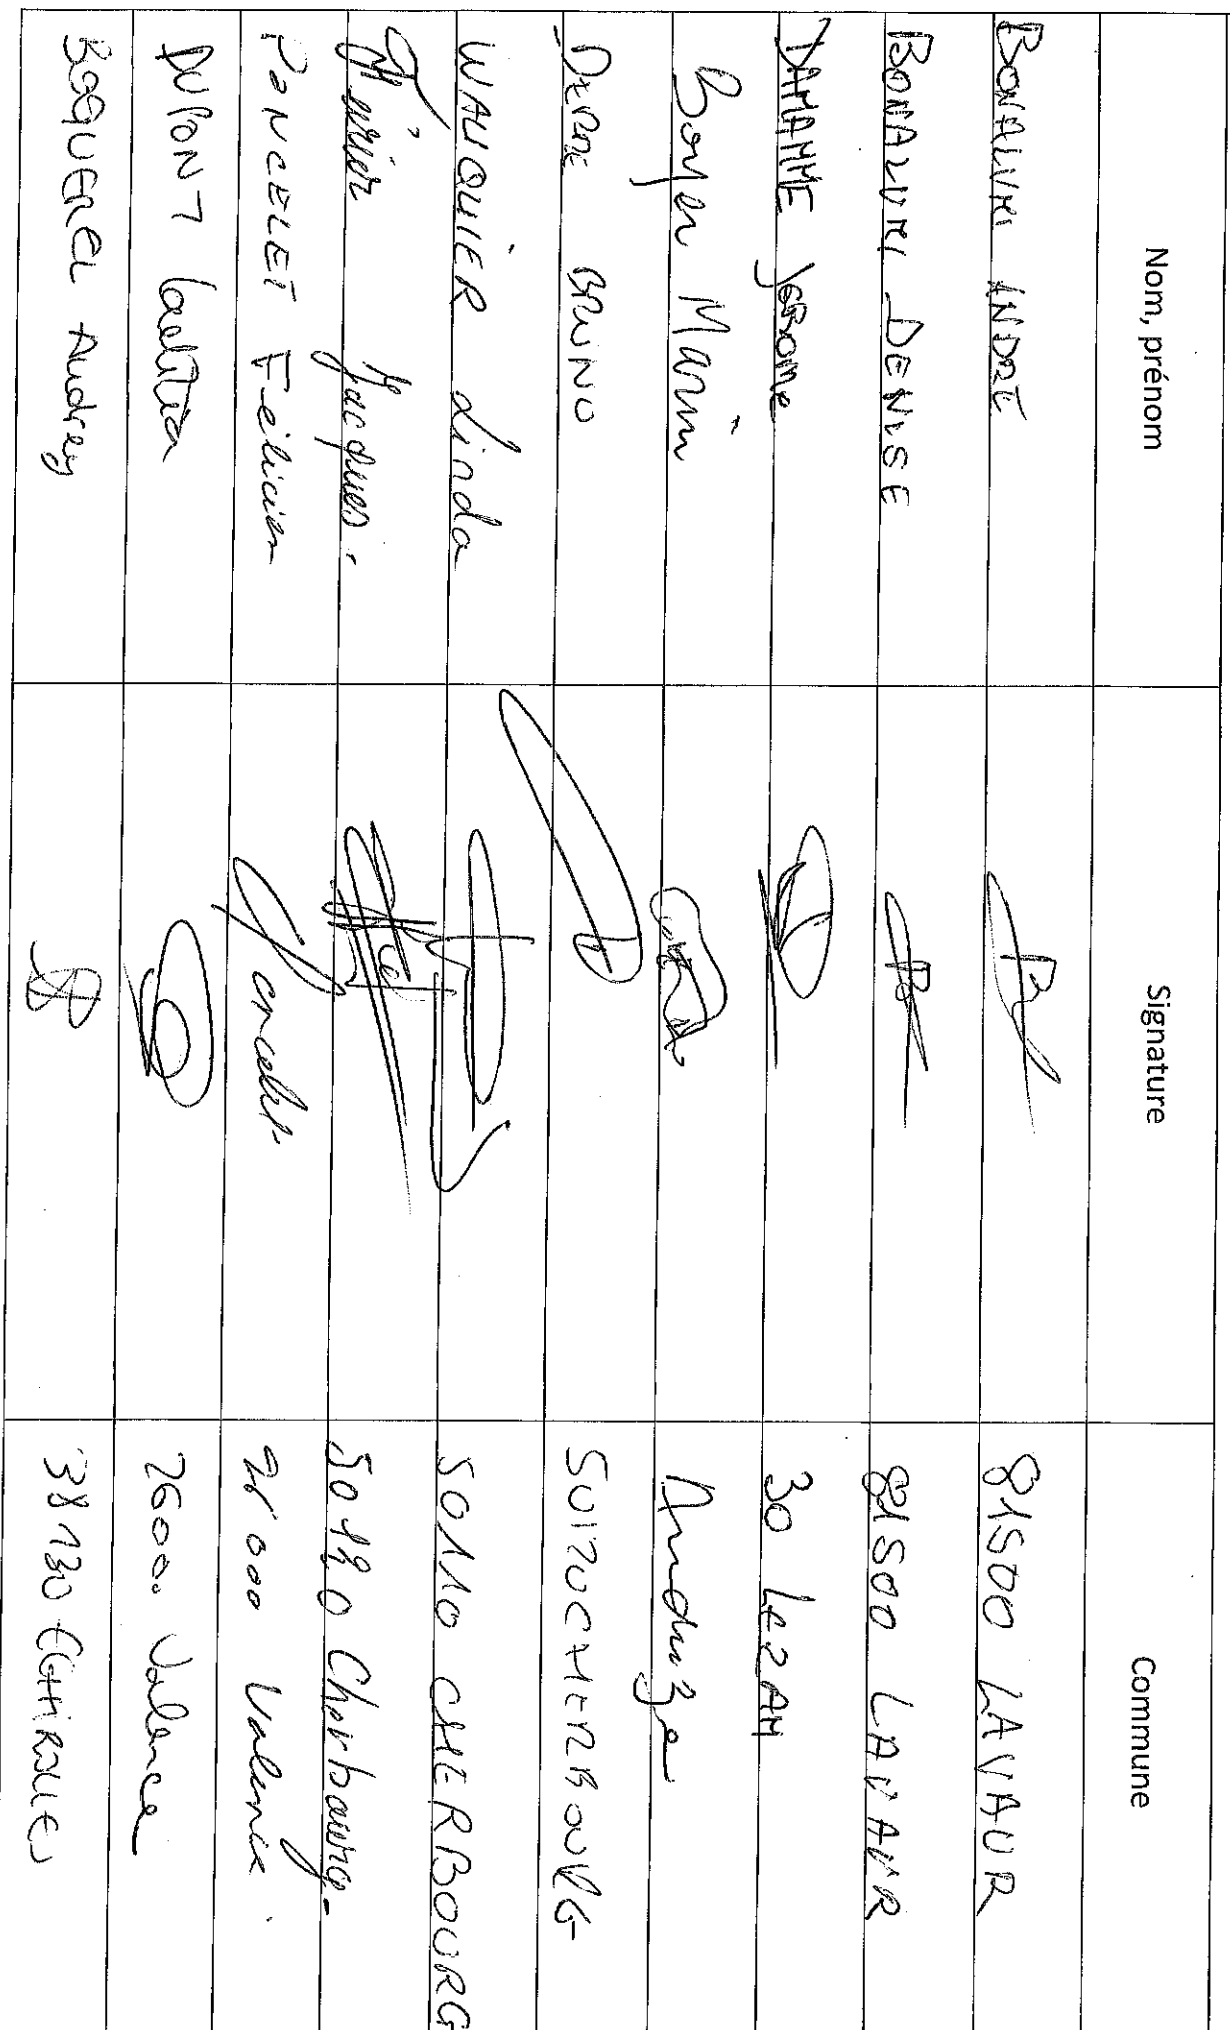 Nom, prénom Signature Commune
BONALVRI ANDRE 81500 LAVAUR
BONALVRI DENISE 81500 LAVAUR
DAMAMME Jerome 30 LEZAN
Boyer Marin Anduze
BRUNO 50120 CHERBOURG
WAUQUIER Linda 50110 CHERBOURG
Jacques. Cherbourg.
PONCELET Félicien Poncelet 26 000 Valence.
DUPONT Laetitia 26000 Valence
BOQUEREL Audrey 38130 ECHIROLLES